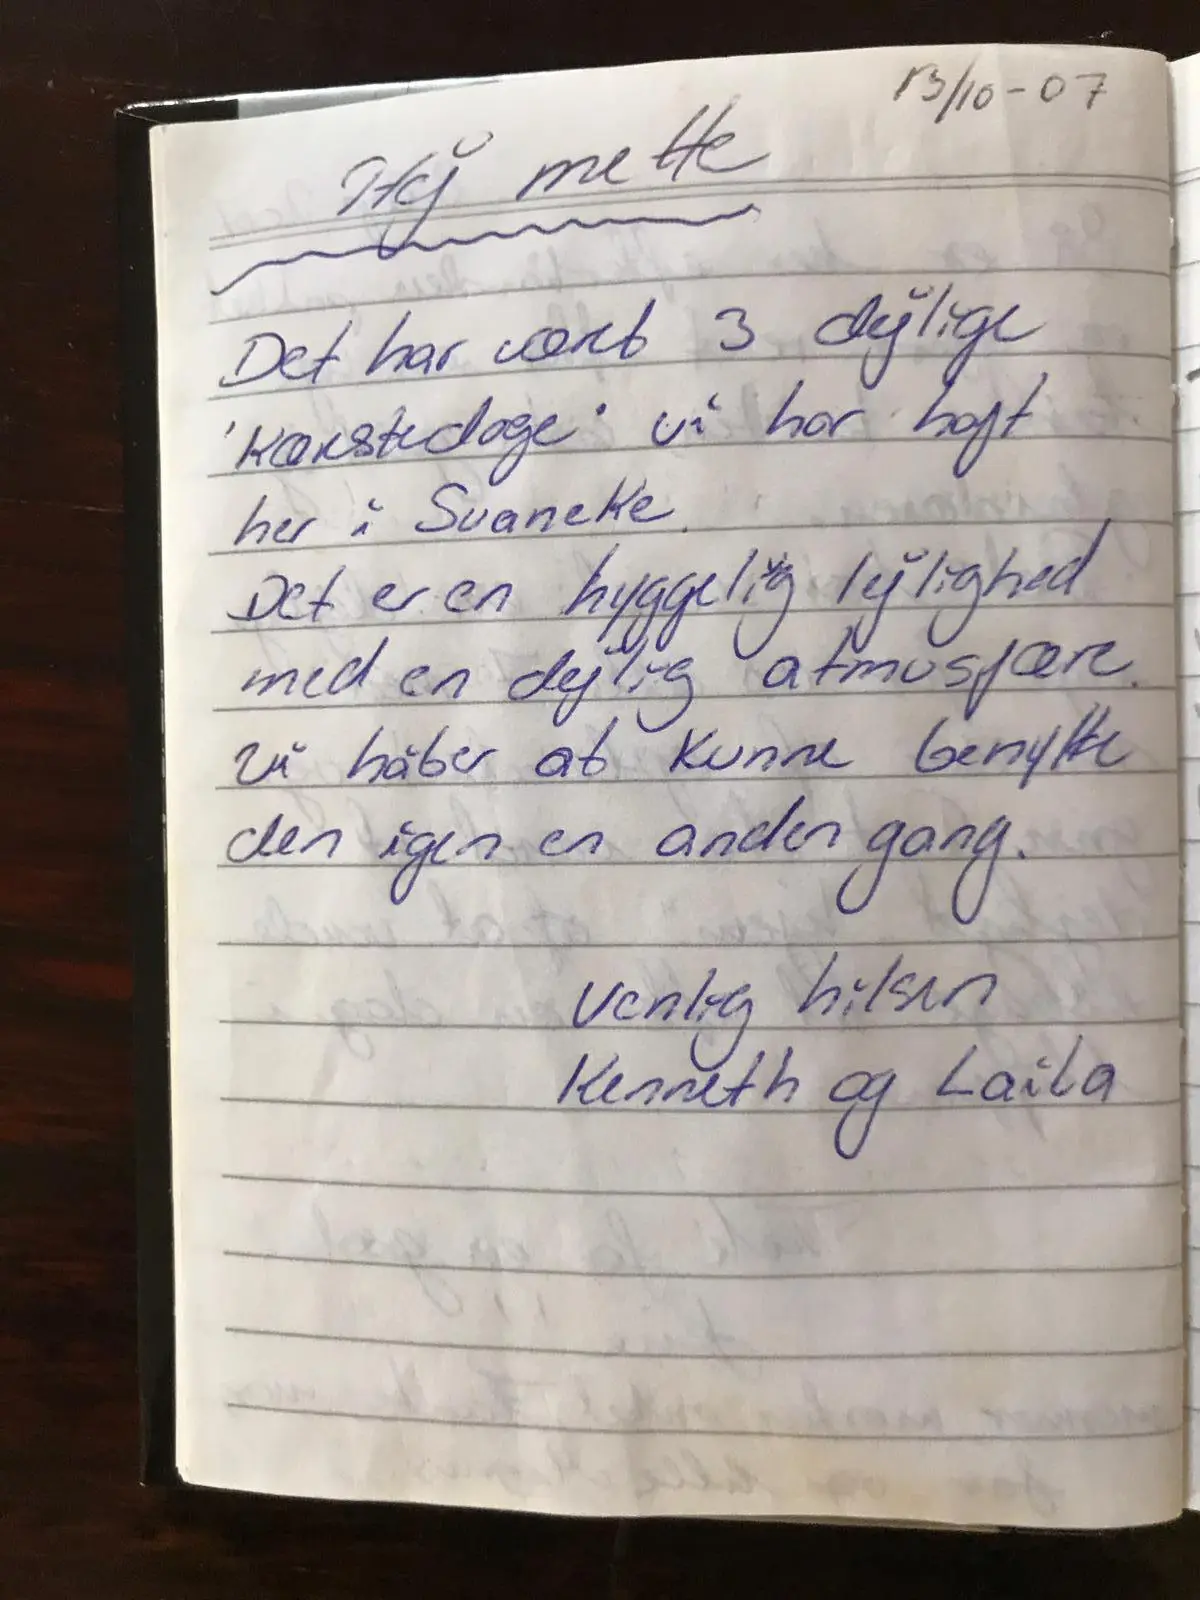 13/10-07
Hej mette
Det har været 3 dejlige
'Kærstedage' vi har haft
her i Svaneke.
Det er en hyggelig lejlighed
med en dejlig atmosfære.
Vi håber at kunne benytte
den igen en anden gang.
Venlig hilsen
Kenneth og Laila